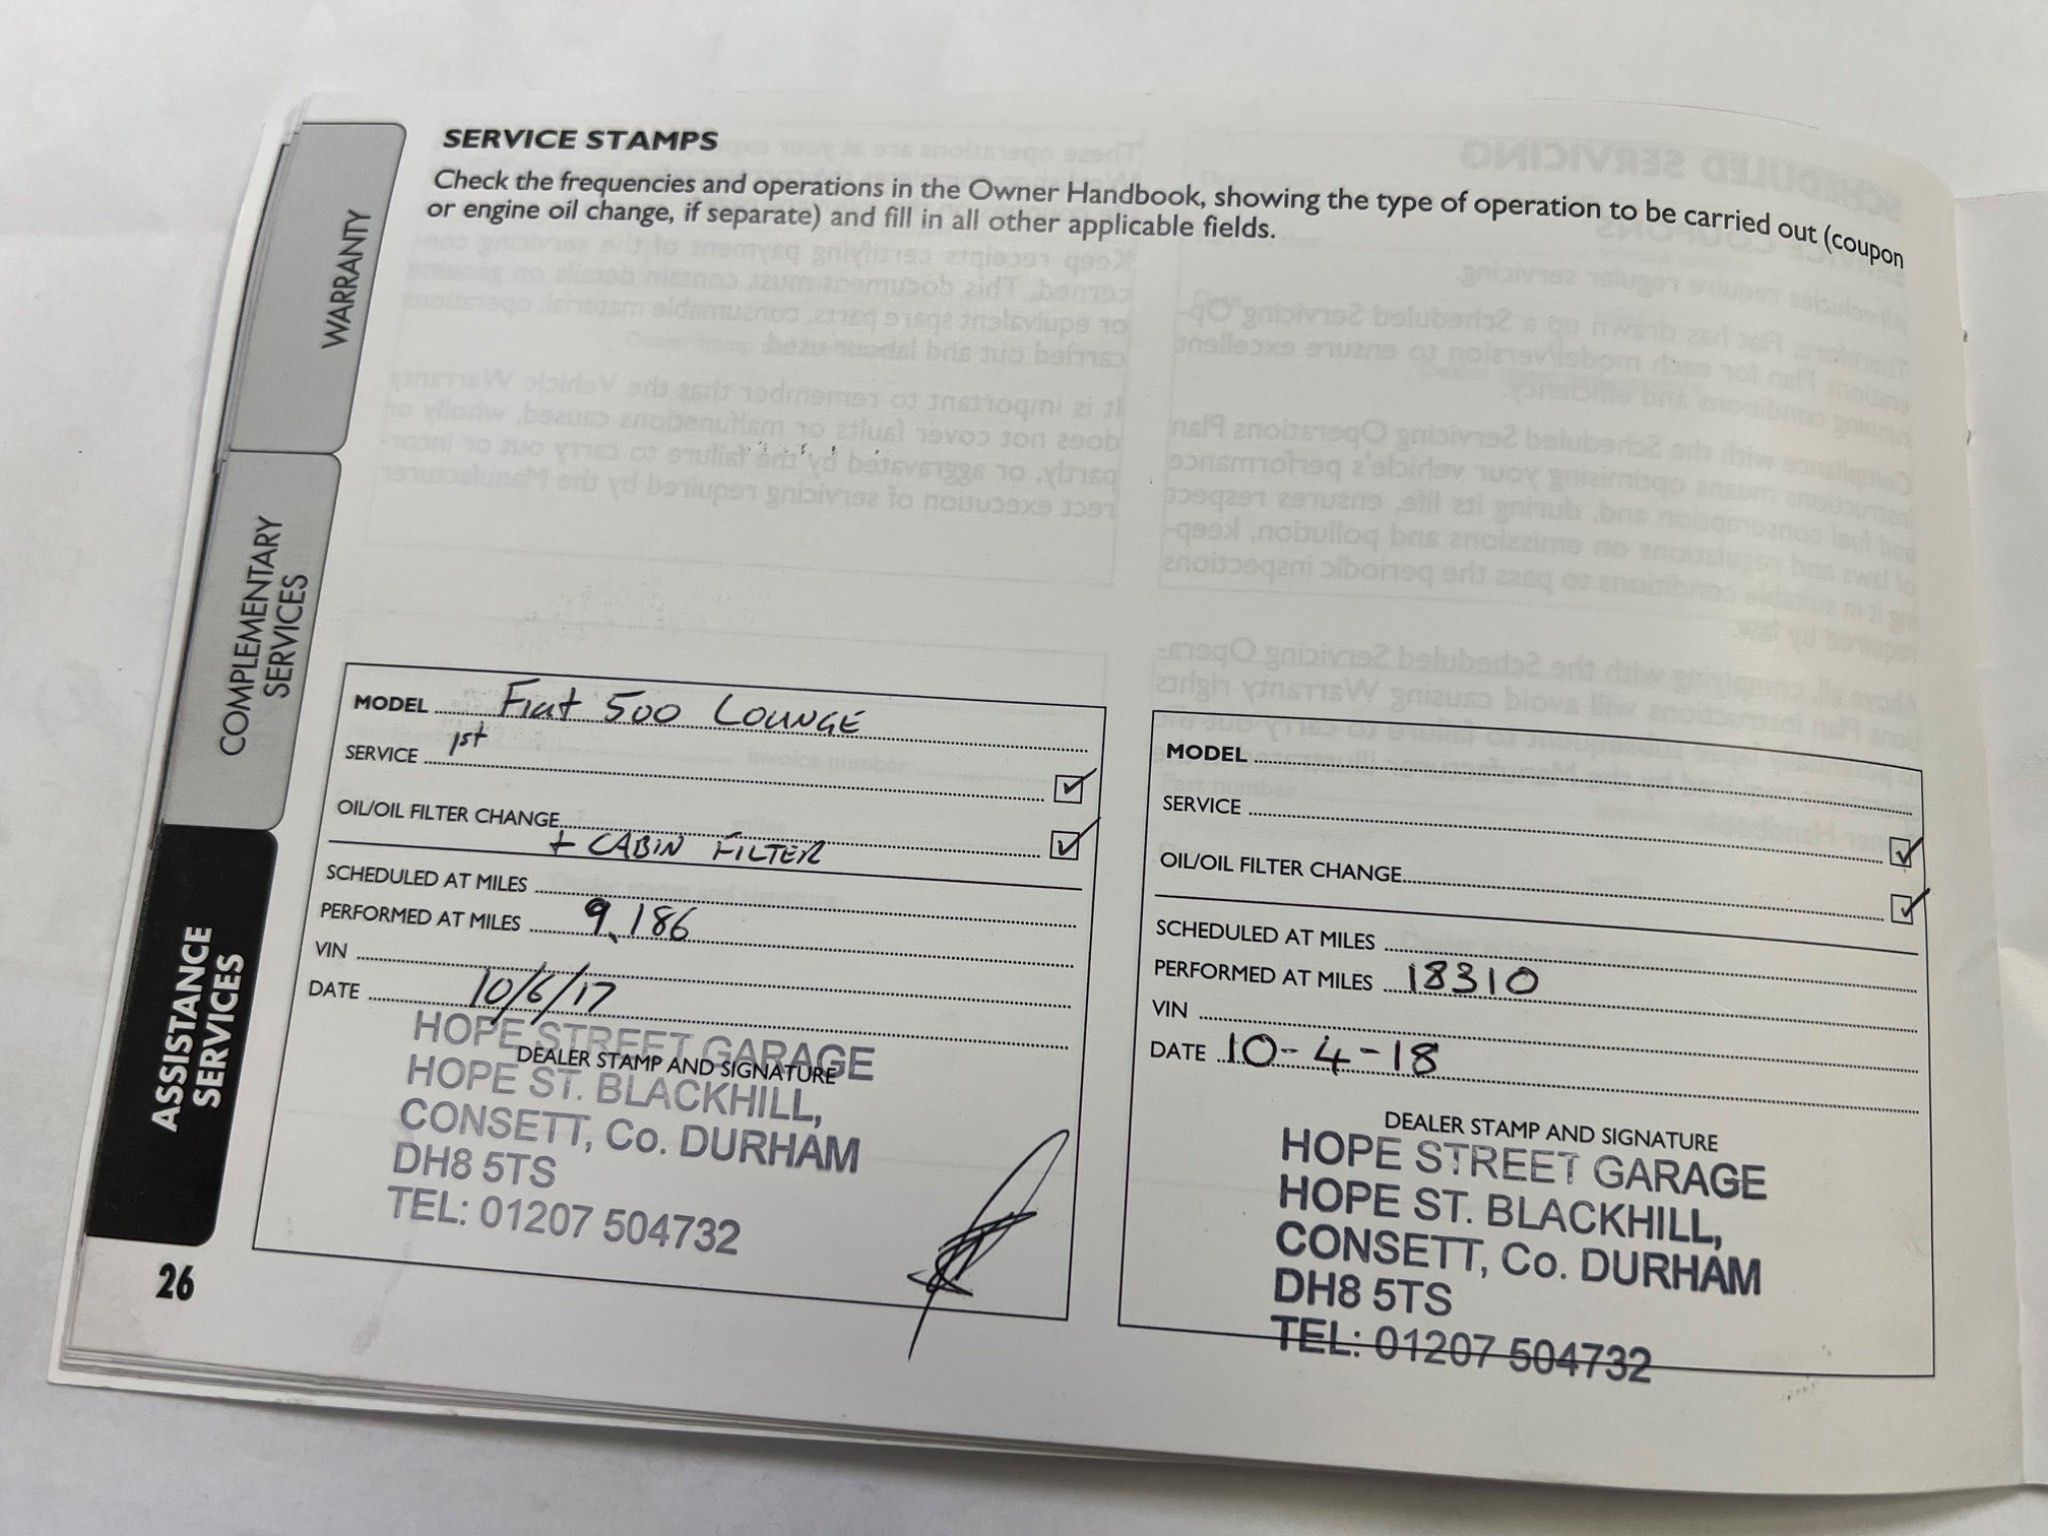 SERVICE STAMPS
Check the frequencies and operations in the Owner Handbook, showing the type of operation to be carried out (coupon
or engine oil change, if separate) and fill in all other applicable fields.
WARRANTY
COMPLEMENTARY
SERVICES
ASSISTANCE
SERVICES
26
MODEL Fiat 500 LOUNGE
SERVICE 1st
OIL/OIL FILTER CHANGE
+ CABIN FILTER
SCHEDULED AT MILES
PERFORMED AT MILES 9,186
VIN
DATE 10/6/17
DEALER STAMP AND SIGNATURE
HOPE STREET GARAGE
HOPE ST. BLACKHILL,
CONSETT, Co. DURHAM
DH8 5TS
TEL: 01207 504732
MODEL
SERVICE
OIL/OIL FILTER CHANGE
SCHEDULED AT MILES
PERFORMED AT MILES 18310
VIN
DATE 10-4-18
DEALER STAMP AND SIGNATURE
HOPE STREET GARAGE
HOPE ST. BLACKHILL,
CONSETT, Co. DURHAM
DH8 5TS
TEL: 01207 504732